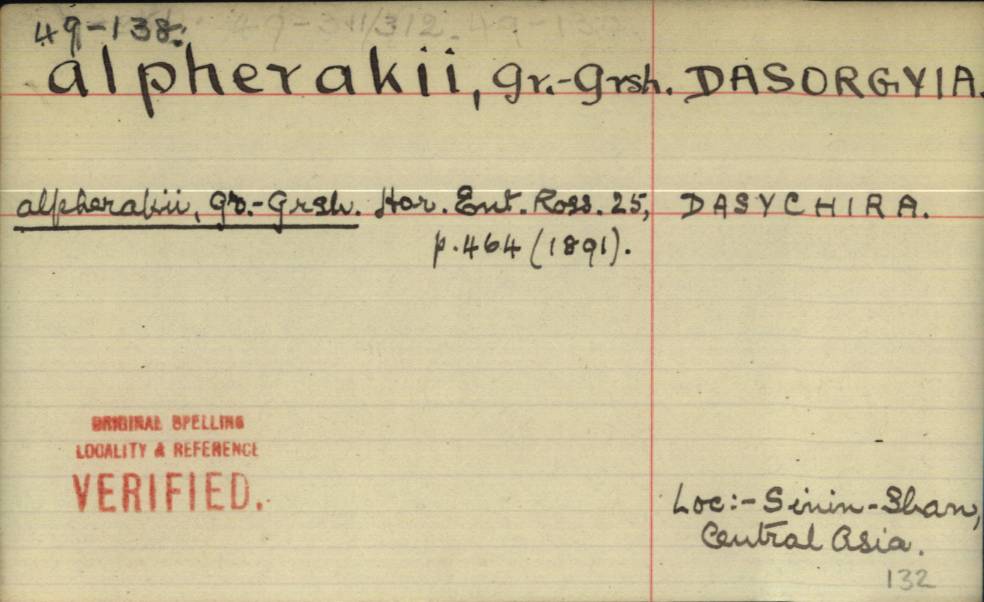 49-138.
49-311/312. 49-138.
alpherakii, Gr.-Grsh. DASORGYIA.
alpherakii, Gr.-Grsh. Hor. Ent. Ross. 25, DASYCHIRA.
p. 464 (1891).
ORIGINAL SPELLING
LOCALITY & REFERENCE
VERIFIED.
Loc:- Sinin-Shan,
Central Asia.
132